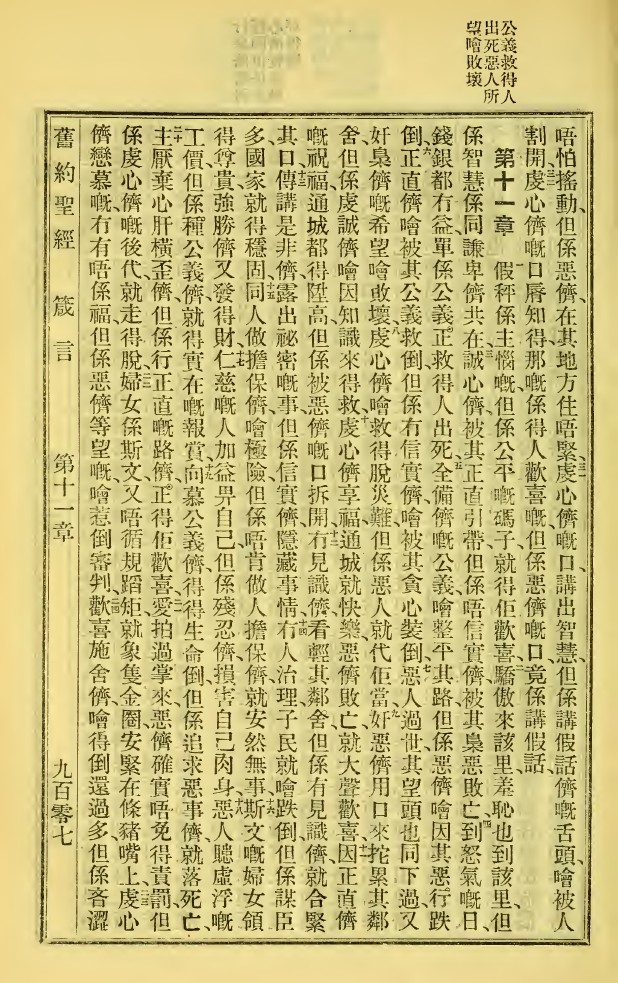 公義救得人
出死惡人所
望噲敗壞
唔怕搖動但係惡儕在其地方住唔緊虔心儕嘅口講出智慧但係講假話儕嘅舌頭噲被人
割開虔心儕嘅口唇知得那嘅係得人歡喜嘅但係惡儕嘅口竟係講假話
第十一章 假秤係主惱嘅但係公平嘅碼子就得佢歡喜驕傲來該里羞恥也到該里但
係智慧係同謙卑儕共在誠心儕被其正直引帶但係唔信實儕被其梟惡敗亡到怒氣嘅日
錢銀都冇益單係公義正救得人出死全備儕嘅公義噲整平其路但係惡儕噲因其惡行跌
倒正直儕噲被其公義救倒但係冇信實儕噲被其貪心裝倒惡人過世其望頭也同下過又
奸梟儕嘅希望噲敗壞虔心儕噲救得脫災難但係惡人就代佢當奸惡儕用口來拕累其鄰
舍但係虔誠儕噲因知識來得救虔心儕享福通城就快樂惡儕敗亡就大聲歡喜因正直儕
嘅祝福通城都得陞高但係被惡儕嘅口拆開冇見識儕看輕其鄰舍但係有見識儕就合緊
其口傳講是非儕露出祕密嘅事但係信實儕隱藏事情冇人治理子民就噲跌倒但係謀臣
多國家就得穩固同人做擔保儕噲極險但係唔肯做人擔保儕就安然無事斯文嘅婦女領
得尊貴強勝儕又發得財仁慈嘅人加益畀自己但係殘忍儕損害自己肉身惡人賺虛浮嘅
工價但係種公義儕就得實在嘅報賞向慕公義儕得得生命倒但係追求惡事儕就落死亡
主厭棄心肝橫歪儕但係行正直嘅路儕正得佢歡喜愛拍過掌來惡儕確實唔免得責罰但
係虔心儕嘅後代就走得脫婦女係斯文又唔循規蹈矩就象隻金圈安緊在條豬嘴上虔心
儕戀慕嘅冇有唔係福但係惡儕等望嘅噲惹倒審判歡喜施舍儕噲得倒還過多但係吝澀
舊約聖經 箴言 第十一章 九百零七